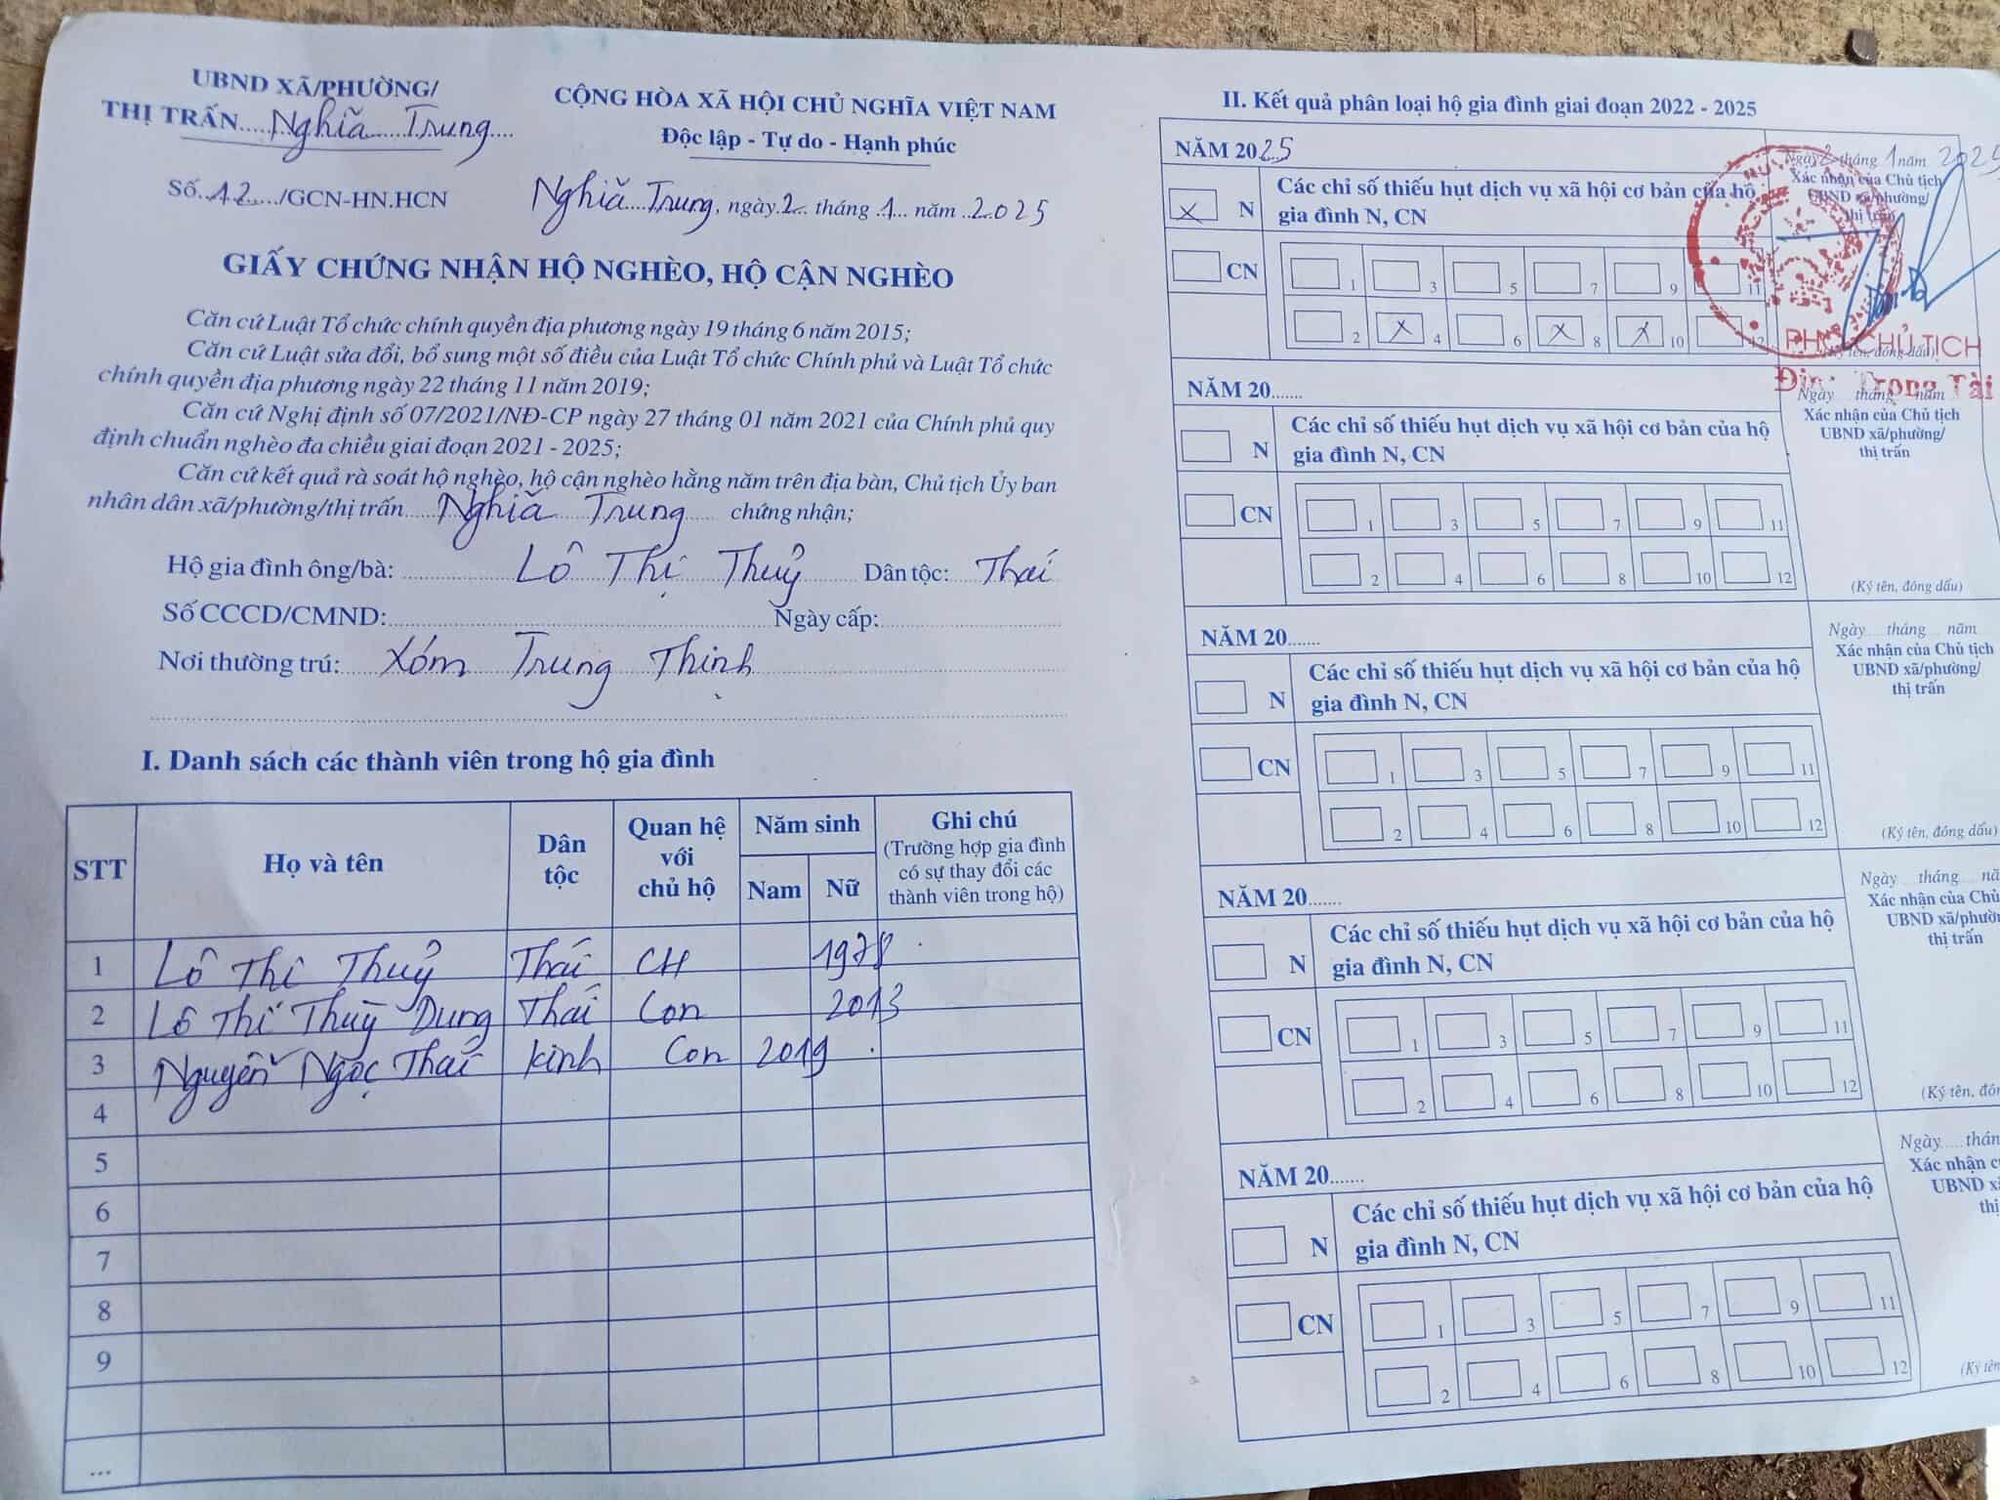 UBND XÃ/PHƯỜNG/
THỊ TRẤN.....Nghĩa Trung....
Số..12...../GCN-HN.HCN
CỘNG HÒA XÃ HỘI CHỦ NGHĨA VIỆT NAM
Độc lập - Tự do - Hạnh phúc
Nghĩa Trung, ngày 2 tháng 1 năm 2025
GIẤY CHỨNG NHẬN HỘ NGHÈO, HỘ CẬN NGHÈO
Căn cứ Luật Tổ chức chính quyền địa phương ngày 19 tháng 6 năm 2015;
Căn cứ Luật sửa đổi, bổ sung một số điều của Luật Tổ chức Chính phủ và Luật Tổ chức
chính quyền địa phương ngày 22 tháng 11 năm 2019;
Căn cứ Nghị định số 07/2021/NĐ-CP ngày 27 tháng 01 năm 2021 của Chính phủ quy
định chuẩn nghèo đa chiều giai đoạn 2021 - 2025;
Căn cứ kết quả rà soát hộ nghèo, hộ cận nghèo hằng năm trên địa bàn, Chủ tịch Ủy ban
nhân dân xã/phường/thị trấn Nghĩa Trung chứng nhận;
Hộ gia đình ông/bà: Lô Thị Thuỷ Dân tộc: Thái
Số CCCD/CMND: Ngày cấp:
Nơi thường trú: Xóm Trung Thịnh
I. Danh sách các thành viên trong hộ gia đình
STT Họ và tên Dân tộc Quan hệ với chủ hộ Năm sinh Nam Nữ Ghi chú (Trường hợp gia đình có sự thay đổi các thành viên trong hộ)
1 Lô Thị Thuỷ Thái CH 1978
2 Lô Thị Thuỳ Dung Thái Con 2013
3 Nguyễn Ngọc Thái kinh Con 2019
4
5
6
7
8
9
...
II. Kết quả phân loại hộ gia đình giai đoạn 2022 - 2025
NĂM 2025
Ngày 2 tháng 1 năm 2025
Xác nhận của Chủ tịch
UBND xã/phường/
thị trấn
X N Các chỉ số thiếu hụt dịch vụ xã hội cơ bản của hộ
gia đình N, CN
CN 1 3 5 7 9 11
2 X 4 6 X 8 X 10 12
PHÓ CHỦ TỊCH
(Ký tên, đóng dấu)
Trọng Tài
NĂM 20.......
Ngày tháng năm
Xác nhận của Chủ tịch
UBND xã/phường/
thị trấn
N Các chỉ số thiếu hụt dịch vụ xã hội cơ bản của hộ
gia đình N, CN
CN 1 3 5 7 9 11
2 4 6 8 10 12
(Ký tên, đóng dấu)
NĂM 20.......
Ngày tháng năm
Xác nhận của Chủ tịch
UBND xã/phường/
thị trấn
N Các chỉ số thiếu hụt dịch vụ xã hội cơ bản của hộ
gia đình N, CN
CN 1 3 5 7 9 11
2 4 6 8 10 12
(Ký tên, đóng dấu)
NĂM 20.......
Ngày tháng nă
Xác nhận của Chủ
UBND xã/phườ
thị trấn
N Các chỉ số thiếu hụt dịch vụ xã hội cơ bản của hộ
gia đình N, CN
CN 1 3 5 7 9 11
2 4 6 8 10 12
(Ký tên, đón
NĂM 20.......
Ngày thán
Xác nhận c
UBND x
thị
N Các chỉ số thiếu hụt dịch vụ xã hội cơ bản của hộ
gia đình N, CN
CN 1 3 5 7 9 11
2 4 6 8 10 12
(Ký tên